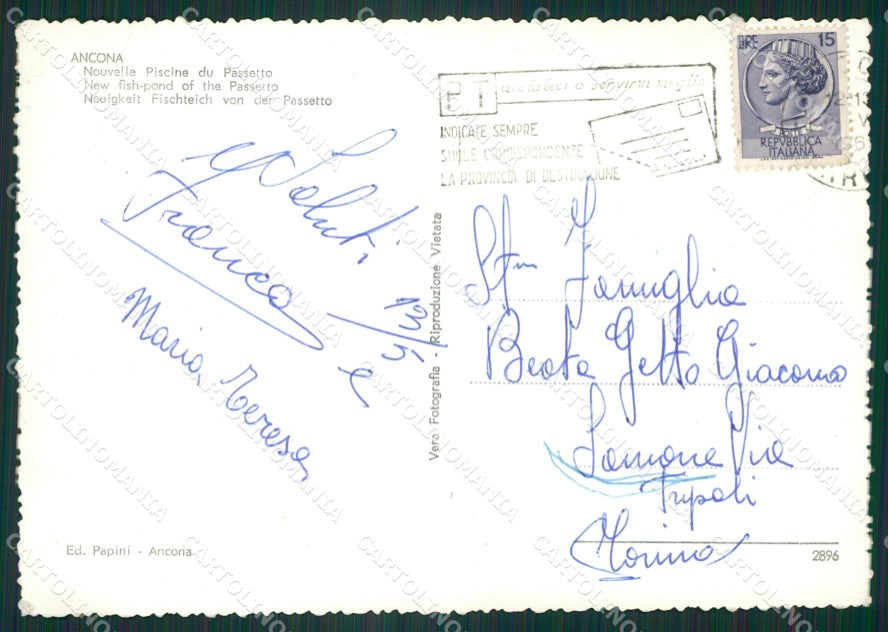 ANCONA
Nouvelle Piscine du Passetto
New fish-pond of the Passetto
Neuigkeit Fischteich von der Passetto
Saluti
Franco
13/5
e
Maria Teresa
Ed. Papini - Ancona
Vera Fotografia - Riproduzione Vietata
PT aiutateci a servirvi meglio
INDICATE SEMPRE
SULLE CORRISPONDENZE
LA PROVINCIA DI DESTINAZIONE
LIRE 15
POSTE
REPVBBLICA
ITALIANA
12-13
Famiglia
Beata Getto Giacomo
Samone Via
Tripoli
Torino
2896
CARTOLINOMANIA